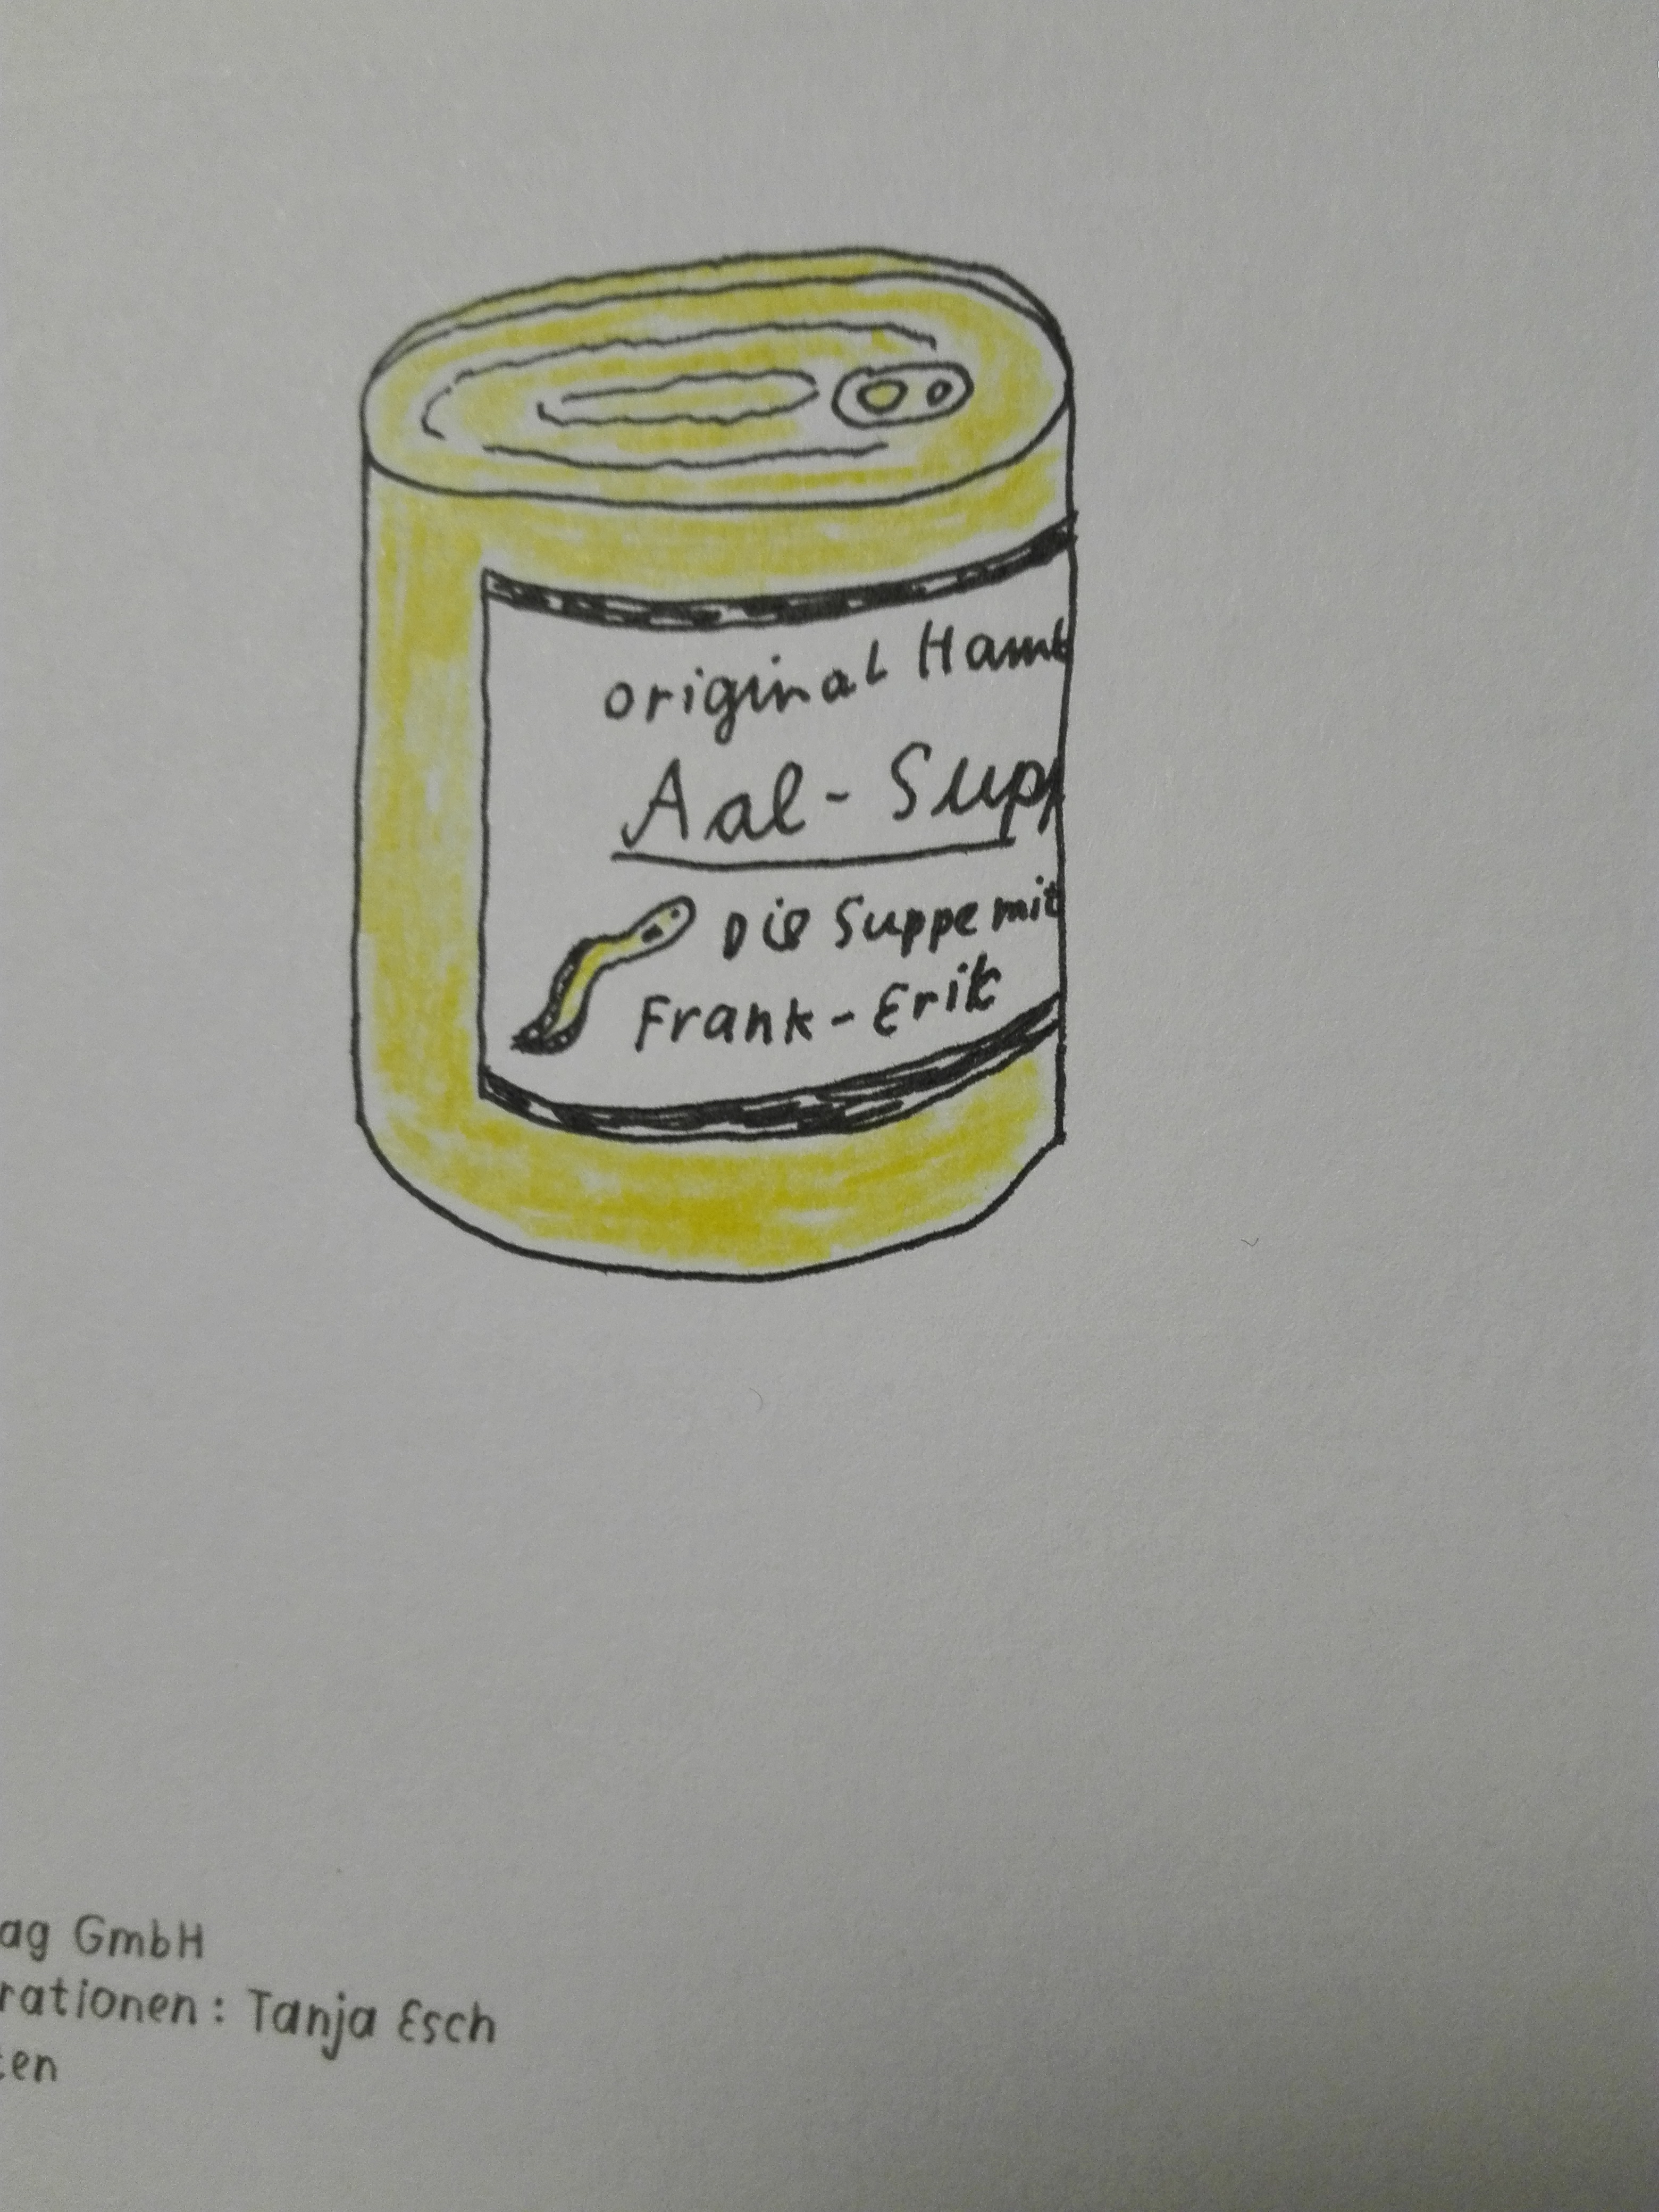 original Hamb
Aal-Supp
Die Suppe mit
Frank-Erik
ag GmbH
rationen: Tanja Esch
ten